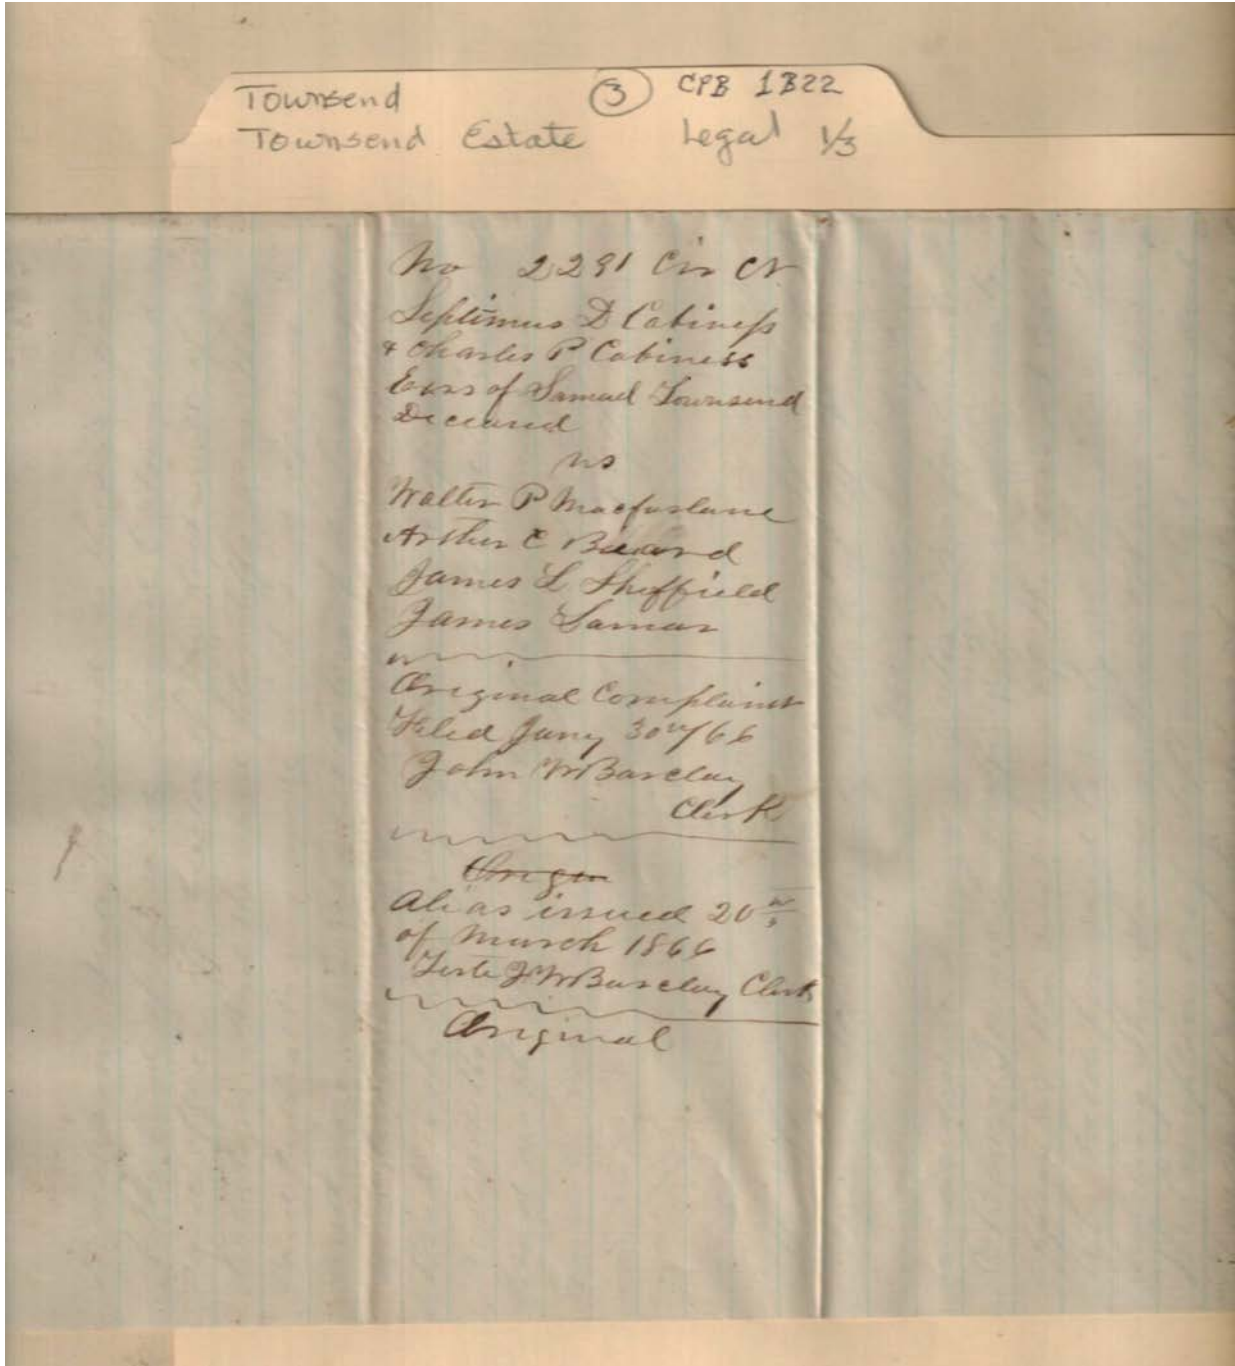 Townsend ③ CPB 1B22
Townsend Estate Legal 1/3
No 2291 Cir Ct
Septimus D Cabiness
& Charles P Cabiness
Exrs of Samuel Townsend
Deceased
vs
Walter P Macfarlane
Arthur C Beard
James L Sheffield
James Lamar
Original Complaint
Filed Jany 30th/66
John W Barclay
Clerk
Origin
Alias issued 20th
of March 1866
Teste J W Barclay Clerk
Original